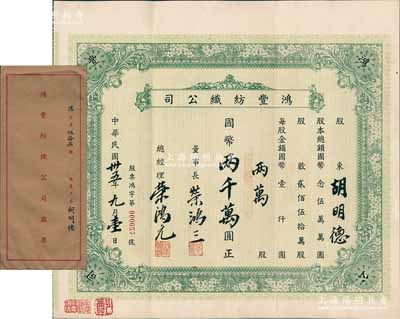 司公織紡豐鴻
股東 胡明德
股本總額國幣念伍萬萬圓
股數貳佰伍拾萬股
每股金額國幣壹仟圓
兩萬股
國幣兩千萬圓正
董事長 榮鴻三
總經理 榮鴻元
股票鴻字第000057號
中華民國卅五年九月壹日
鴻豐紡織公司股票
胡明德